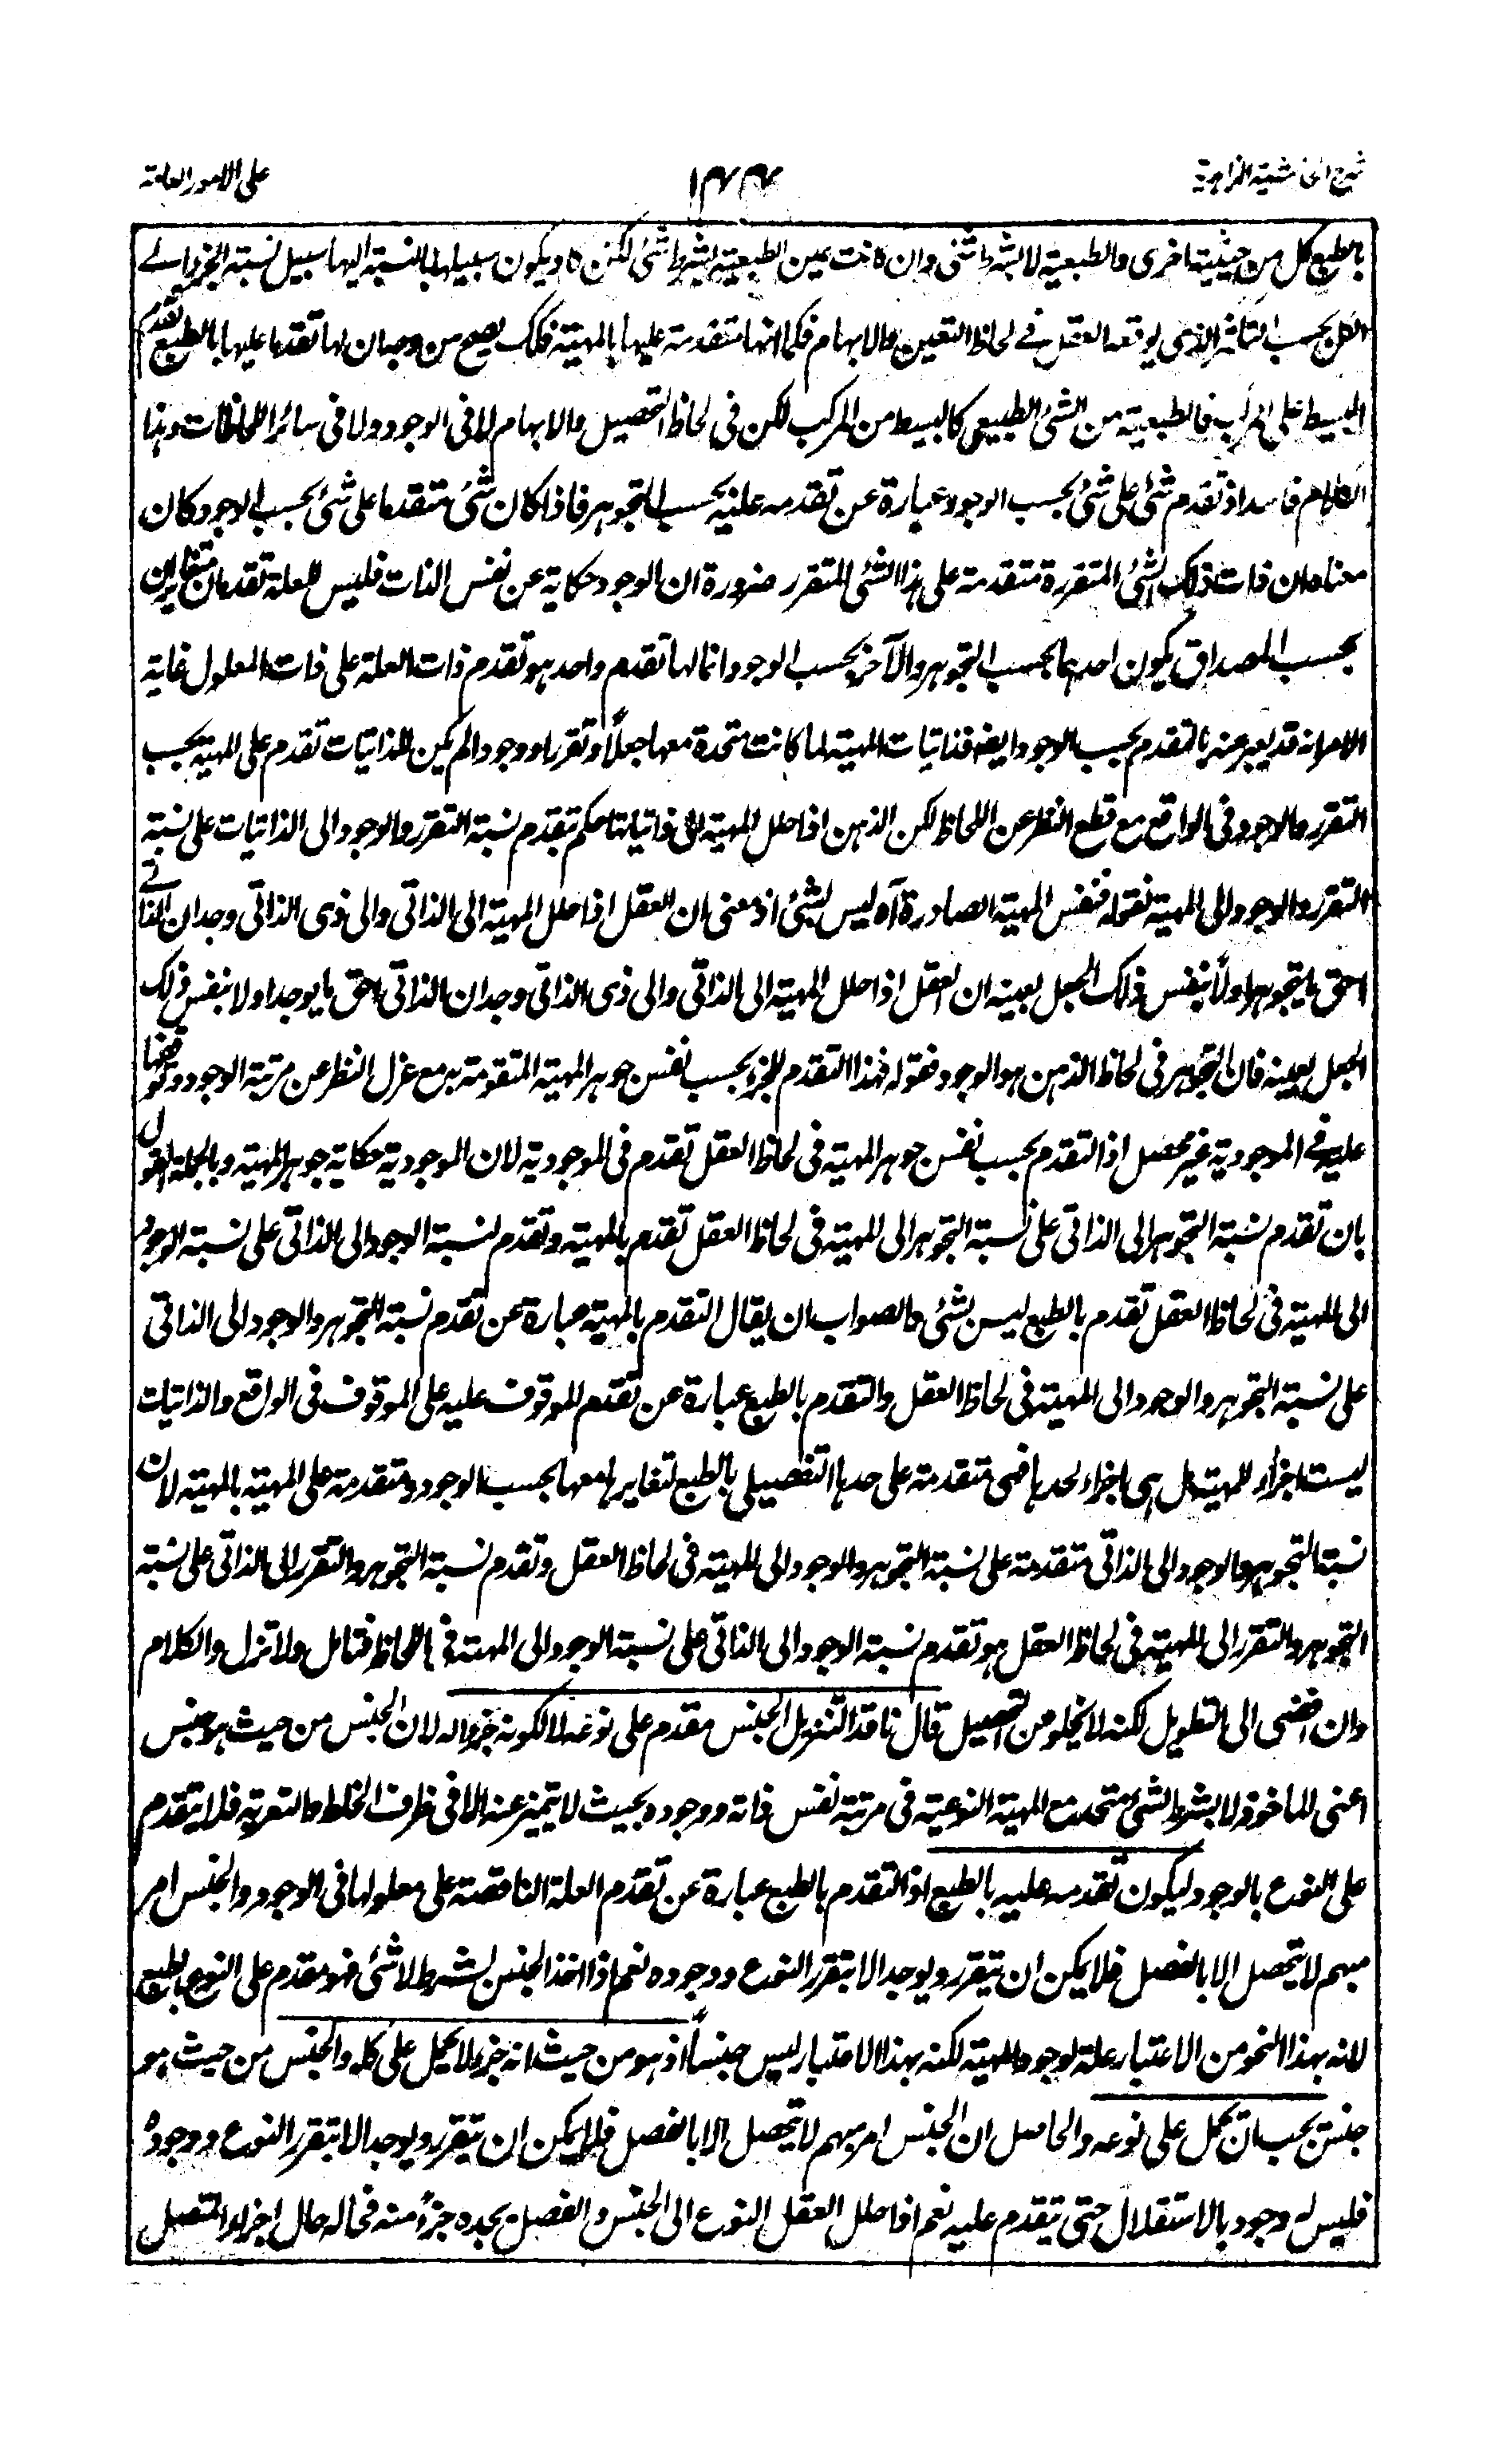 شرح الحاشية الزاهدية
على الامور العامة
بالطبع كل من حيثية اخرى والطبعية لا بشرط شئ وان كانت عين الطبعية بشرط شئ لكن ويكون سبيلها بالنسبة اليها سبيل نسبة الجزء الے
الكل بحسب الذى يوقعه العقل فے لحاظ التعين والابهام فكما انها متقدمة عليها بالمهية فكك يصح من وجه ان لها تقدما عليها بالطبع تقدم
البسيط على المركب فالطبعية من الشئ الطبيعى كالبسيط من المركب لكن فى لحاظ التحصيل والابهام لا فى الوجود ولا فى سائر اللحاظات وهذا
الكلام فاسد اذ تقدم شئ على شئ بحسب الوجود عبارة عن تقدمه عليه بحسب التجوهر فاذا كان شئ متقدما على شئ بحسب الوجود كان
معناه ان ذات ذلك الشئ المتقررة متقدمة على هذا الشئ المتقرر ضرورة ان الوجود حكاية عن نفس الذات فليس للعلة تقدمان متغايران
بحسب المصداق يكون احدهما بحسب التجوهر والآخر بحسب الوجود انما لها تقدم واحد هو تقدم ذات العلة على ذات المعلول غاية
الامر انه قد يعبر عنه بالتقدم بحسب الوجود ايضا فذاتيات المهية لما كانت متحدة معها جعلاً وتقررا ووجودا لم يكن للذاتيات تقدم على المهية بحسب
التقرر والوجود فى الواقع مع قطع النظر عن اللحاظ لكن الذهن اذا حلل المهية الى ذاتياتها حكم بتقدم نسبة التقرر والوجود الى الذاتيات على نسبة
التقرر والوجود الى المهية فقوله فنفس المهية الصادرة آه ليس بشئ اذ معنى ان العقل اذا حلل المهية الى الذاتى والى ذى الذاتى وجد ان الذاتے
احق بالتجوهر اولاً بنفس ذلك الجعل بعينه ان العقل اذا حلل المهية الى الذاتى والى ذى الذاتى وجد ان الذاتى احق بان يوجد اولا بنفس ذلك
الجعل بعينه فان التجوهر فى لحاظ الذهن هو الوجود فقوله فهذا التقدم للجزء بحسب نفس جوهر المهية المتقومة به مع عزل النظر عن مرتبة الوجود
عليه فے الموجودية غير محصل اذ التقدم بحسب نفس جوهر المهية فى لحاظ العقل تقدم فى الموجودية لان الموجودية حكاية جوهر المهية وبالجملة القول
بان تقدم نسبة التجوهر الى الذاتى على نسبة التجوهر الى المهية فى لحاظ العقل تقدم بالمهية وتقدم نسبة الوجود الى الذاتى على نسبة الوجود
الى المهية فى لحاظ العقل تقدم بالطبع ليس بشئ والصواب ان يقال التقدم بالمهية عبارة عن تقدم نسبة التجوهر والوجود الى الذاتى
على نسبة التجوهر والوجود الى المهية فى لحاظ العقل والتقدم بالطبع عبارة عن تقدم الموقوف عليه على الموقوف فى الواقع والذاتيات
ليست اجزاء للمهية بل هى اجزاء لحدها فهى متقدمة على حدها التفصيلى بالطبع لتغايرها معها بحسب الوجود ومتقدمة على المهية بالمهية لان
نسبة التجوهر والوجود الى الذاتى متقدمة على نسبة التجوهر والوجود الى المهية فى لحاظ العقل وتقدم نسبة التجوهر والتقرر الى الذاتى على نسبة
التجوهر والتقرر الى المهية فى لحاظ العقل هو تقدم نسبة الوجود الى الذاتى على نسبة الوجود الى المهية فى اللحاظ فتامل ولا تزل والكلام
وان افضى الى التطويل لكنه لا يخلو عن التحصيل قال ناقد التنزيل الجنس مقدم على نوعه لا لكونه جزءا له لان الجنس من حيث هو جنس
اعنى الماخوذ لا بشرط الشئ متحد مع المهية النوعية فى مرتبة نفس ذاته ووجوده بحيث لا يتميز عنه الا فى ظرف الخلط والتعرية فلا يتقدم
على النوع بالوجود ليكون تقدمه عليه بالطبع اذ التقدم بالطبع عبارة عن تقدم العلة الناقصة على معلولها فى الوجود والجنس امر
مبهم لا يتحصل الا بالفصل فلا يمكن ان يتقرر ويوجد الا بتقرر النوع ووجوده نعم اذا اخذ الجنس بشرط لا شئ فهو مقدم على النوع بالطبع
لانه بهذا النحو من الاعتبار علة لوجود المهية لكنه بهذا الاعتبار ليس جنساً اذ هو من حيث انه جزء لا يحمل على كله والجنس من حيث هو
جنس يجب ان يحمل على نوعه والحاصل ان الجنس امر مبهم لا يتحصل الا بالفصل فلا يمكن ان يتقرر ويوجد الا بتقرر النوع ووجوده
فليس له وجود بالاستقلال حتى يتقدم عليه نعم اذا حلل العقل النوع الى الجنس والفصل يجده جزءً منه فحاله حال اجزاء المتصل